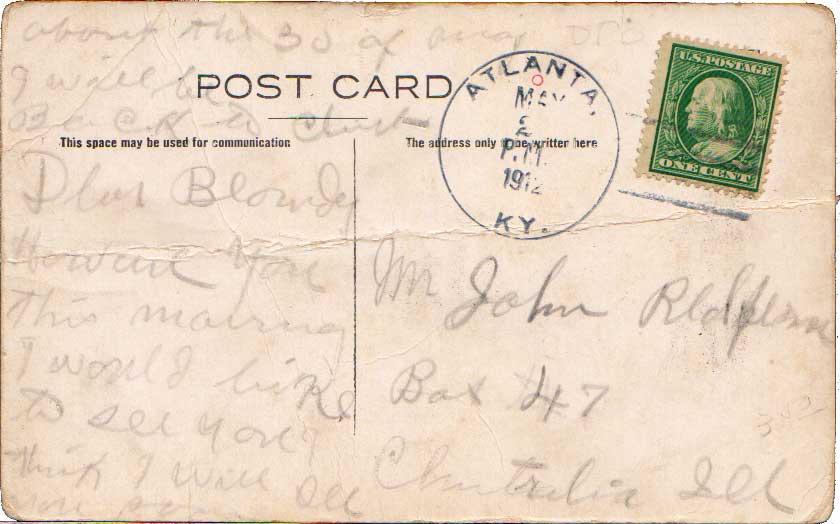 about the 30 of may
I will be
Back to
POST CARD
This space may be used for communication
The address only to be written here
ATLANTA,
MAY
2
P.M.
1912
KY.
U.S. POSTAGE
ONE CENT
Dear Blondy
How are you
this morning
I would like
to see you
think I will see
you
Mr John
Box 47
Centralia Ill